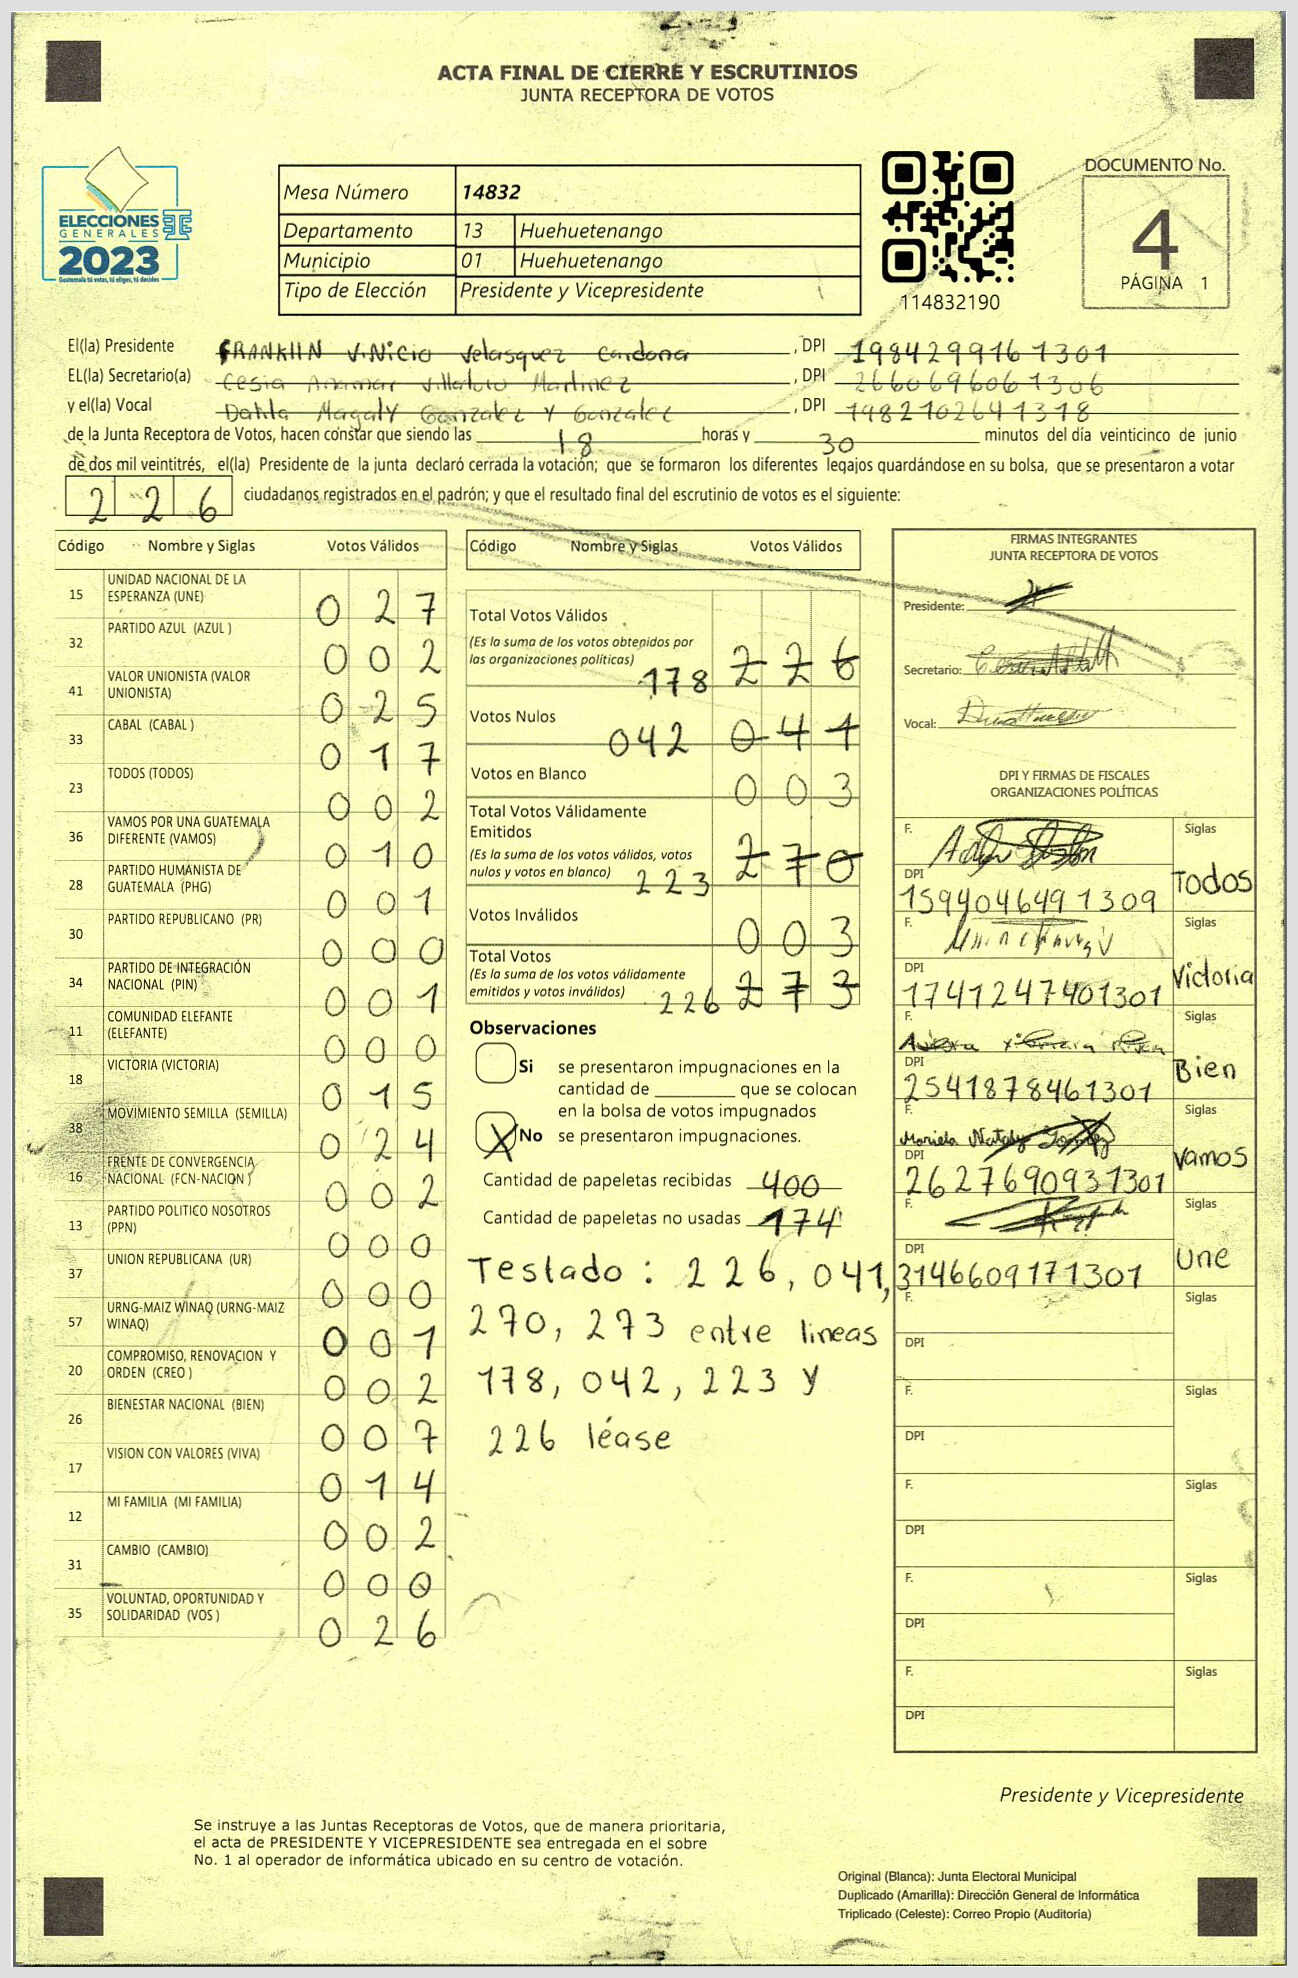 ACTA FINAL DE CIERRE Y ESCRUTINIOS
JUNTA RECEPTORA DE VOTOS
ELECCIONES
GENERALES
2023
Guatemala tú votas, tú eliges, tú decides
Mesa Número 14832
Departamento 13 Huehuetenango
Municipio 01 Huehuetenango
Tipo de Elección Presidente y Vicepresidente
114832190
DOCUMENTO No.
4
PÁGINA 1
El(la) Presidente FRANKlIN ViNicio Velasquez Cardona, DPI 1984299161301
EL(la) Secretario(a) Cesia Anamar Villatoro Martinez, DPI 2660696061306
y el(la) Vocal Dahla Magaly Gonzalez Y Gonzalez, DPI 1982102641318
de la Junta Receptora de Votos, hacen constar que siendo las 18 horas y 30 minutos del día veinticinco de junio
de dos mil veintitrés, el(la) Presidente de la junta declaró cerrada la votación; que se formaron los diferentes legajos quardándose en su bolsa, que se presentaron a votar
226 ciudadanos registrados en el padrón; y que el resultado final del escrutinio de votos es el siguiente:
Código Nombre y Siglas Votos Válidos
15 UNIDAD NACIONAL DE LA
ESPERANZA (UNE) 027
32 PARTIDO AZUL (AZUL ) 002
41 VALOR UNIONISTA (VALOR
UNIONISTA) 025
33 CABAL (CABAL ) 017
23 TODOS (TODOS) 002
36 VAMOS POR UNA GUATEMALA
DIFERENTE (VAMOS) 010
28 PARTIDO HUMANISTA DE
GUATEMALA (PHG) 001
30 PARTIDO REPUBLICANO (PR) 000
34 PARTIDO DE INTEGRACIÓN
NACIONAL (PIN) 001
11 COMUNIDAD ELEFANTE
(ELEFANTE) 000
18 VICTORIA (VICTORIA) 015
38 MOVIMIENTO SEMILLA (SEMILLA) 024
16 FRENTE DE CONVERGENCIA
NACIONAL (FCN-NACION ) 002
13 PARTIDO POLITICO NOSOTROS
(PPN) 000
37 UNION REPUBLICANA (UR) 000
57 URNG-MAIZ WINAQ (URNG-MAIZ
WINAQ) 001
20 COMPROMISO, RENOVACION Y
ORDEN (CREO ) 002
26 BIENESTAR NACIONAL (BIEN) 007
17 VISION CON VALORES (VIVA) 014
12 MI FAMILIA (MI FAMILIA) 002
31 CAMBIO (CAMBIO) 000
35 VOLUNTAD, OPORTUNIDAD Y
SOLIDARIDAD (VOS ) 026
Código Nombre y Siglas Votos Válidos
Total Votos Válidos
(Es la suma de los votos obtenidos por
las organizaciones políticas) 178 226
Votos Nulos 042 041
Votos en Blanco 003
Total Votos Válidamente
Emitidos
(Es la suma de los votos válidos, votos
nulos y votos en blanco) 223 270
Votos Inválidos 003
Total Votos
(Es la suma de los votos válidamente
emitidos y votos inválidos) 226 273
Observaciones
Si se presentaron impugnaciones en la
cantidad de ________ que se colocan
en la bolsa de votos impugnados
X No se presentaron impugnaciones.
Cantidad de papeletas recibidas 400
Cantidad de papeletas no usadas 174
Testado : 226, 041,
270, 273 entre lineas
178, 042, 223 y
226 léase
FIRMAS INTEGRANTES
JUNTA RECEPTORA DE VOTOS
Presidente:
Secretario:
Vocal:
DPI Y FIRMAS DE FISCALES
ORGANIZACIONES POLÍTICAS
F. Siglas
DPI 1594046491309 Todos
F. Siglas
DPI 1741247401301 Victoria
F. Siglas
DPI 2541878461301 Bien
F. Mariela Nataly Siglas
DPI 2627690931301 Vamos
F. Siglas
DPI 3146609171301 Une
F. Siglas
DPI
F. Siglas
DPI
F. Siglas
DPI
F. Siglas
DPI
F. Siglas
DPI
Presidente y Vicepresidente
Se instruye a las Juntas Receptoras de Votos, que de manera prioritaria,
el acta de PRESIDENTE Y VICEPRESIDENTE sea entregada en el sobre
No. 1 al operador de informática ubicado en su centro de votación.
Original (Blanca): Junta Electoral Municipal
Duplicado (Amarilla): Dirección General de Informática
Triplicado (Celeste): Correo Propio (Auditoria)